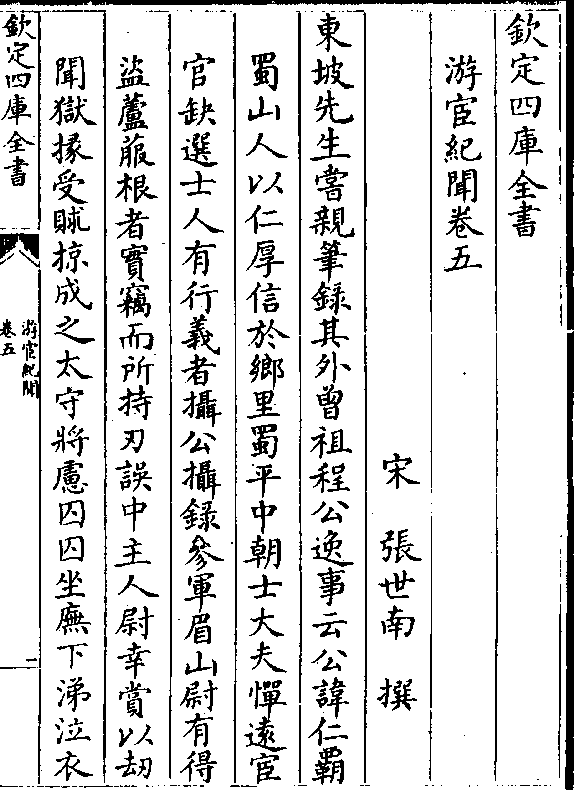 欽定四庫全書
游宦紀聞卷五
宋　張世南　撰
東坡先生嘗親筆録其外曾祖程公逸事云公諱仁霸
蜀山人以仁厚信於鄉里蜀平中朝士大夫憚遠宦
官缺選士人有行義者攝公攝録參軍眉山尉有得
盜蘆菔根者實竊而所持刃誤中主人尉幸賞以劫
聞獄掾受賕掠成之太守將慮囚囚坐廡下涕泣衣
欽定四庫全書
游宦紀聞
卷五
一